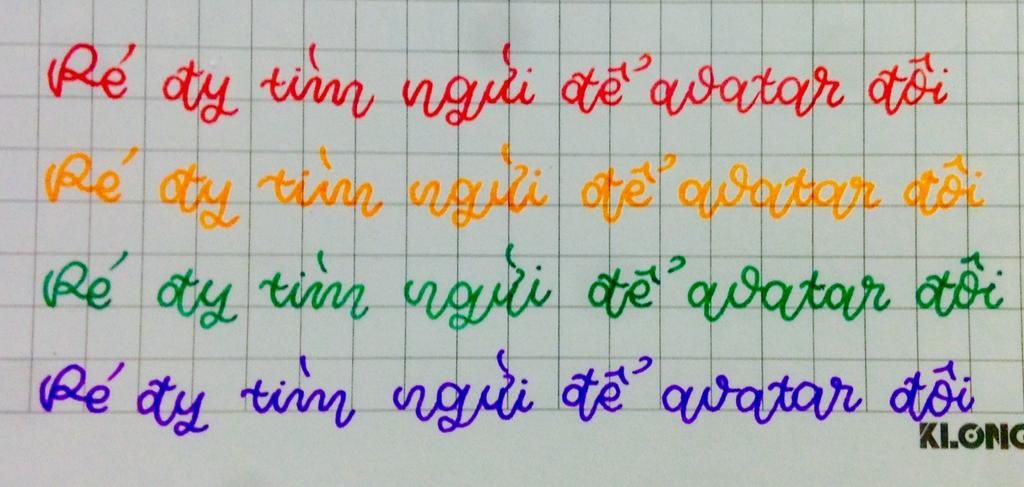 Ré đy tìm người để avatar đôi
Ré đy tìm người để avatar đôi
Ré đy tìm người để avatar đôi
Ré đy tìm người để avatar đôi
KLONG